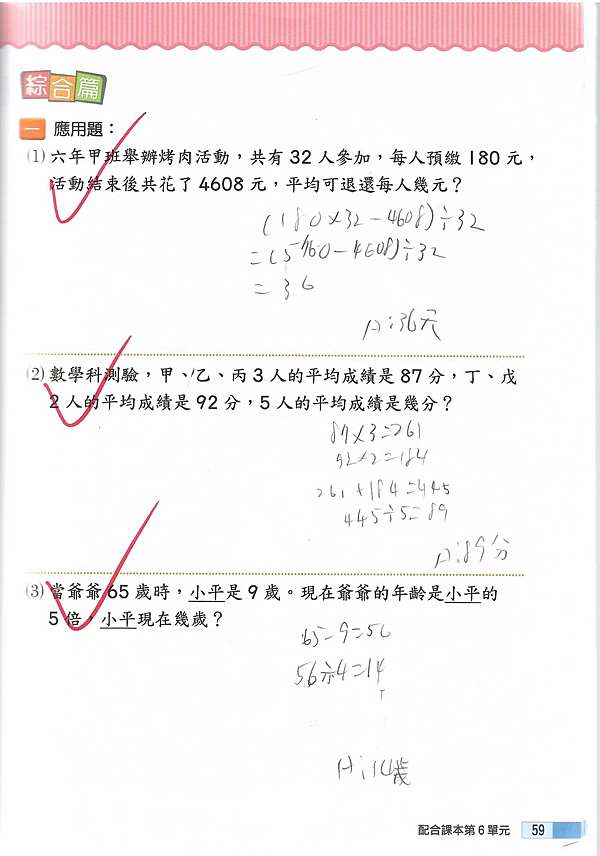 綜合篇
一 應用題：
⑴ 六年甲班舉辦烤肉活動，共有 32 人參加，每人預繳 180 元，
活動結束後共花了 4608 元，平均可退還每人幾元？
(180×32－4608)÷32
=(5760－4608)÷32
=36
A：36元
⑵ 數學科測驗，甲、乙、丙 3 人的平均成績是 87 分，丁、戊
2 人的平均成績是 92 分，5 人的平均成績是幾分？
87×3=261
92×2=184
261+184=445
445÷5=89
A：89分
⑶ 當爺爺 65 歲時，小平是 9 歲。現在爺爺的年齡是小平的
5 倍，小平現在幾歲？
65－9=56
56÷4=14
A：14歲
配合課本第 6 單元 59